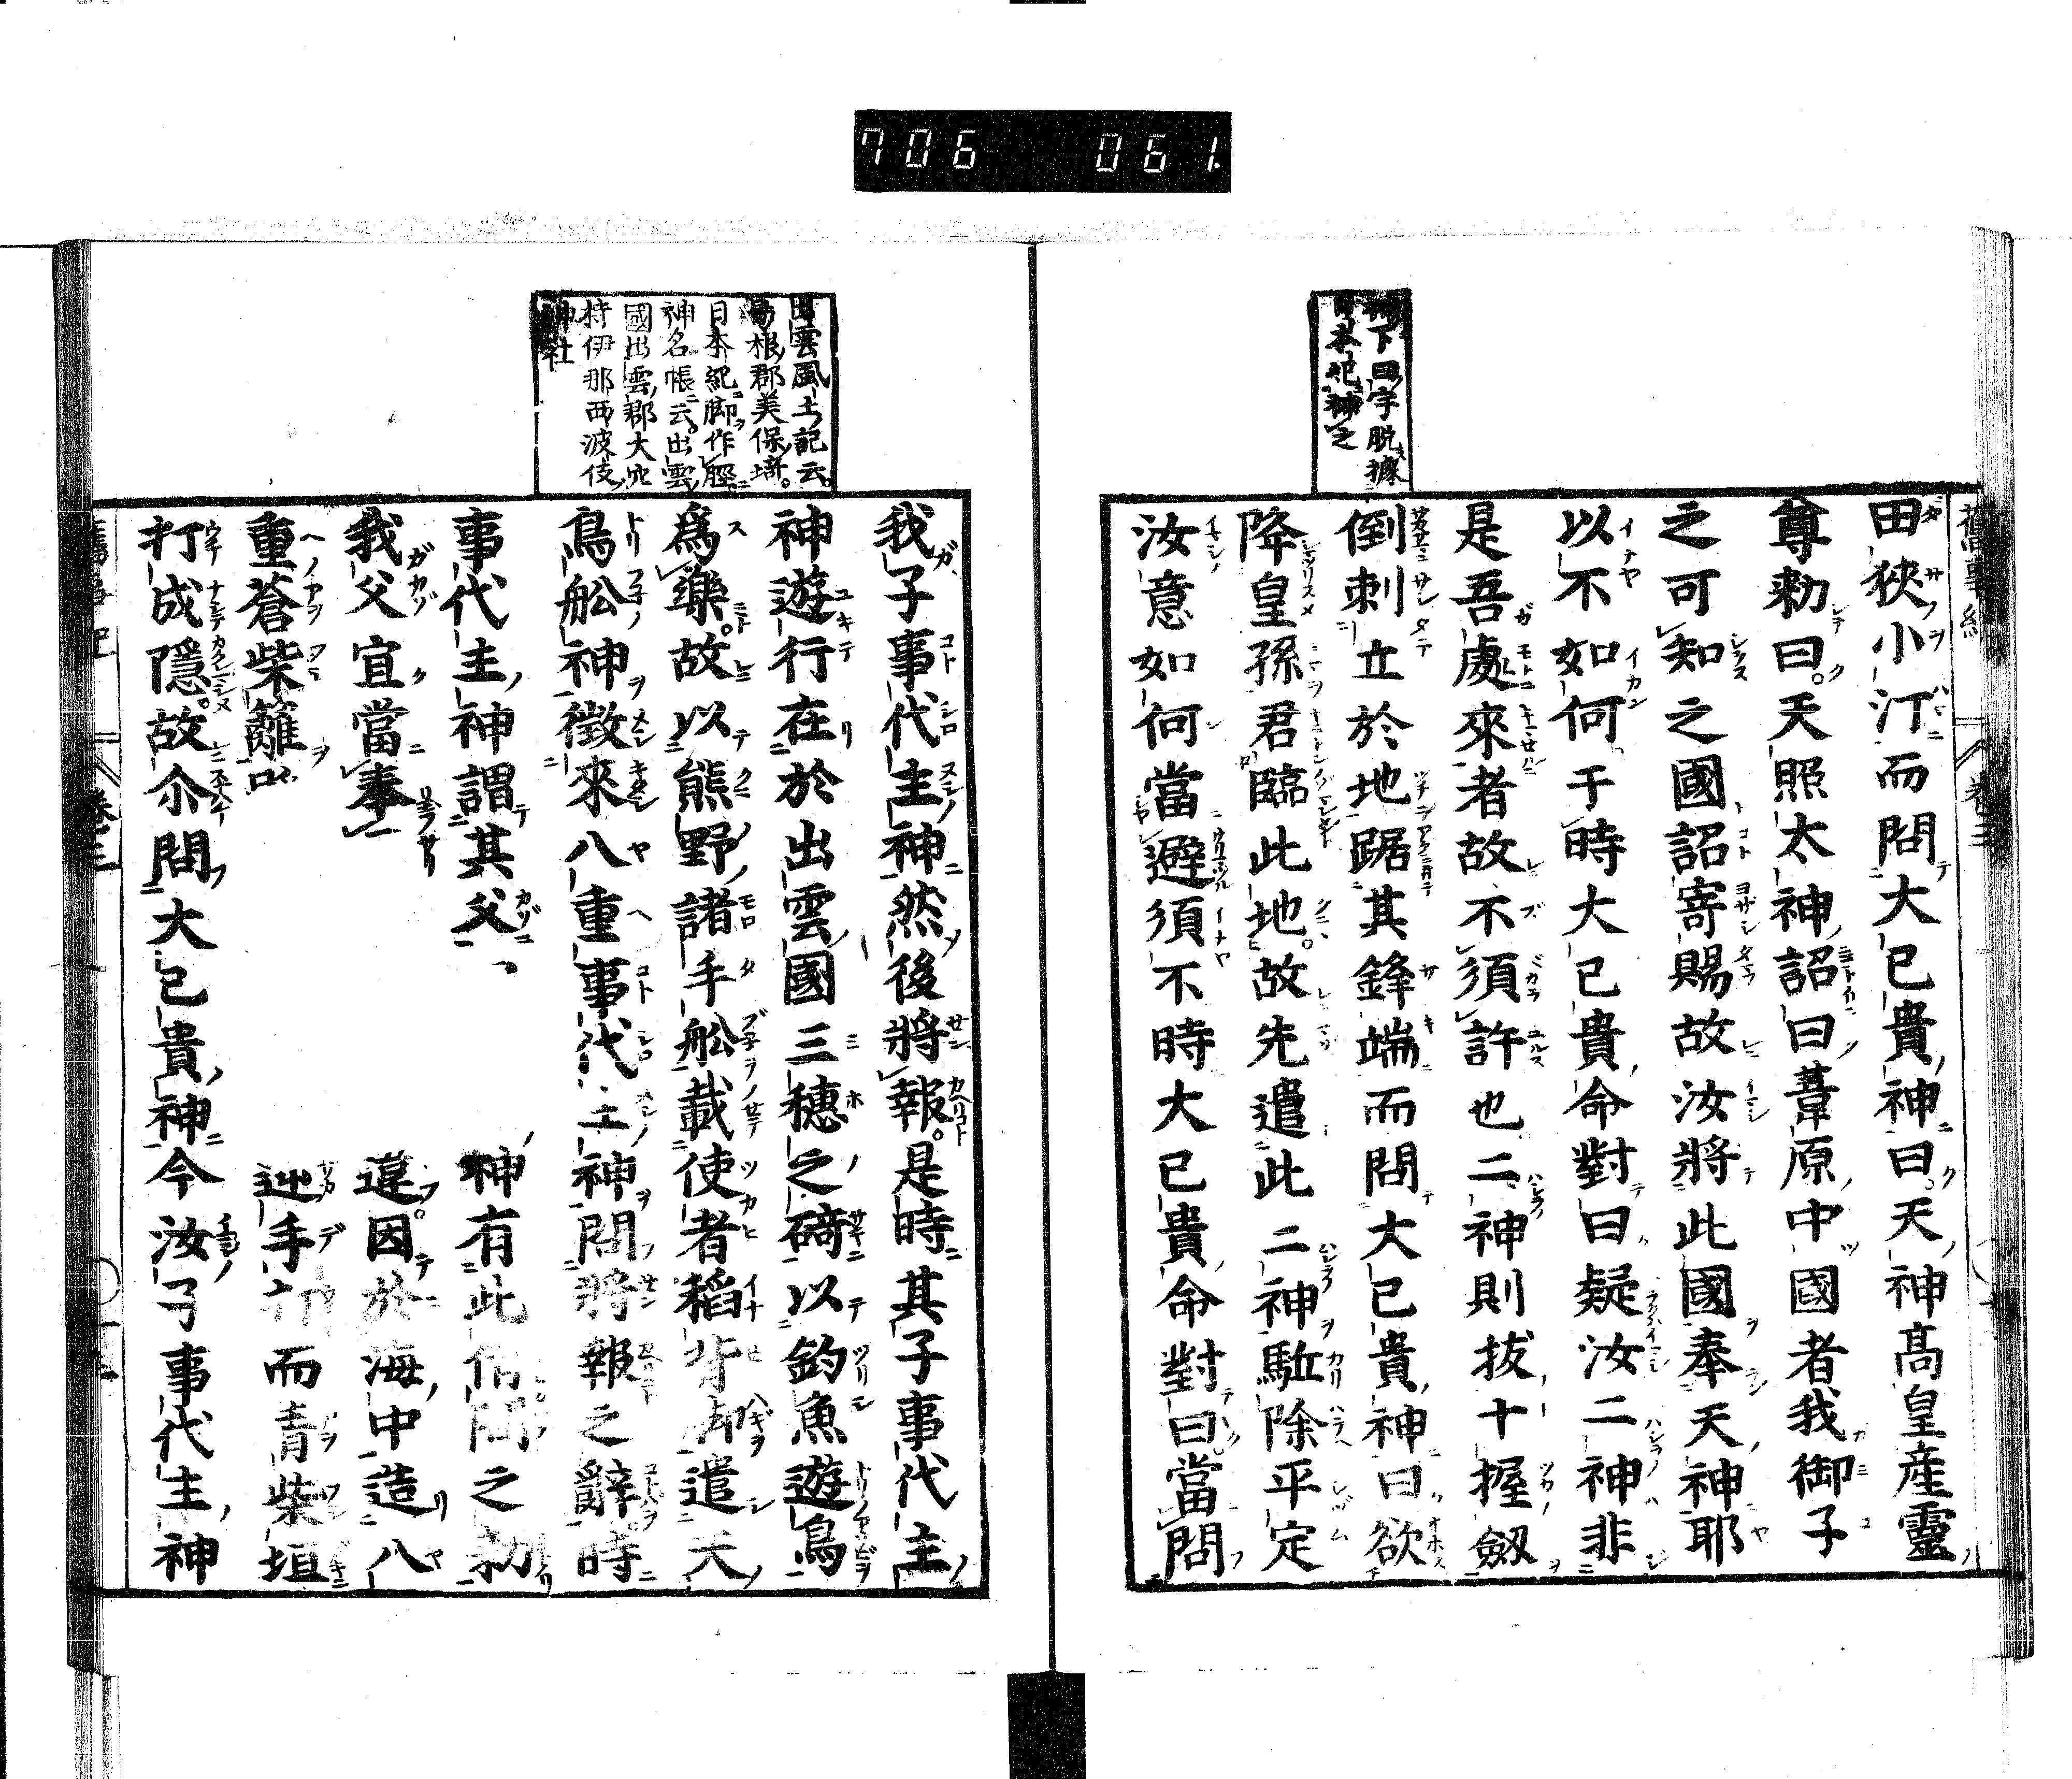 706 061
神下曰字脱據
日本紀補之
田狹小汀而問大已貴神曰天神髙皇産靈
尊勑曰天照太神詔曰葦原中國者我御子
之可知之國詔寄賜故汝將此國奉天神耶
以不如何于時大已貴命對曰疑汝二神非
是吾處來者故不須許也二神則拔十握劔
倒刺立於地踞其鋒端而問大已貴神曰欲
降皇孫君臨此地故先遣此二神駈除平定
汝意如何當避須不時大已貴命對曰當問
出雲風土記云
島根郡美保埼
日本紀脚作脛
神名帳云出雲
國出雲郡大穴
持伊那西波伎
神社
我子事代主神然後將報是時其子事代主
神遊行在於出雲國三穗之碕以釣魚遊鳥
爲樂故以熊野諸手舩載使者稻背脚遣天
鳥舩神徴來八重事代主神問將報之辭時
事代主神謂其父 神有此 問之勑
我父宜當奉 違因於海中造八
重蒼柴籬 逆手 而青柴垣
打成隱故尒問大已貴神今汝子事代主神